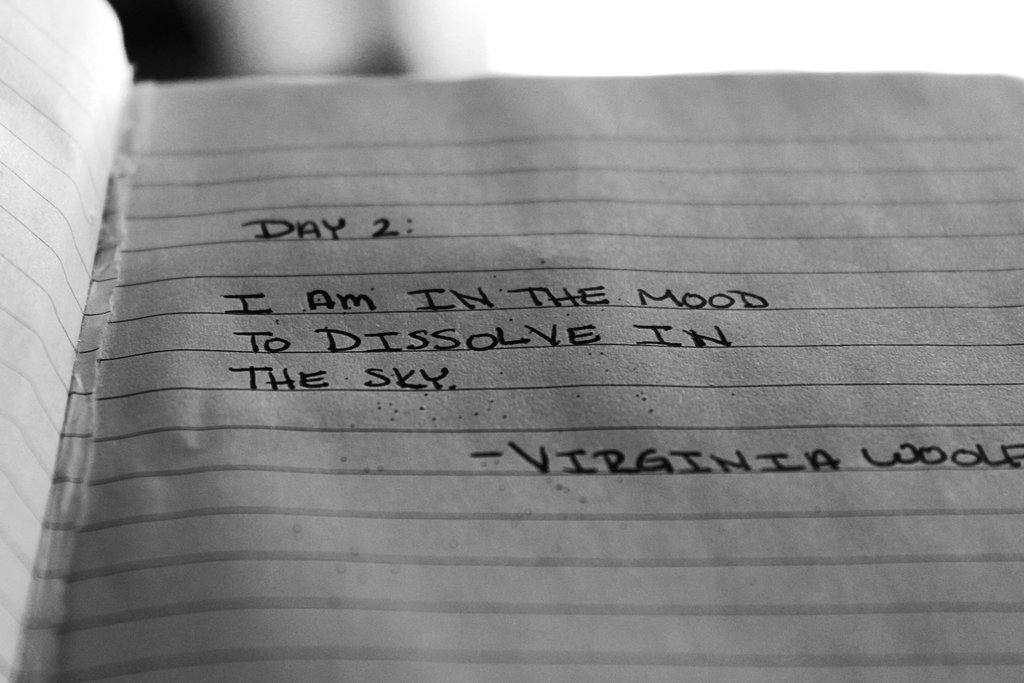 DAY 2:
I AM IN THE MOOD
TO DISSOLVE IN
THE SKY.
-VIRGINIA WOOLF